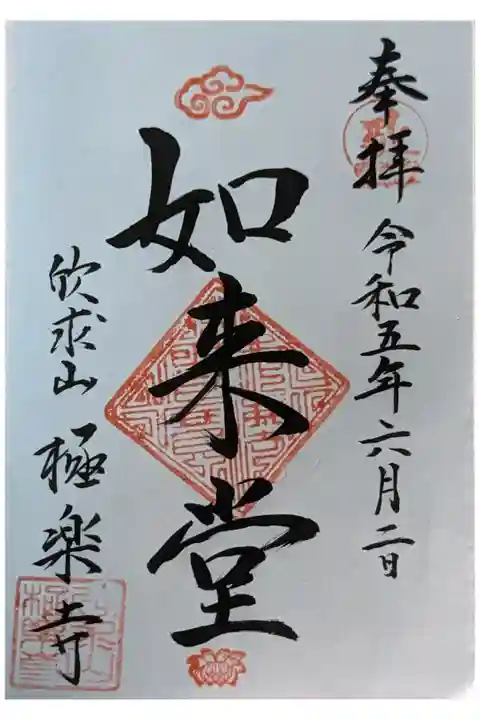 奉拝 令和五年六月二日
如来堂
欣求山 極楽寺